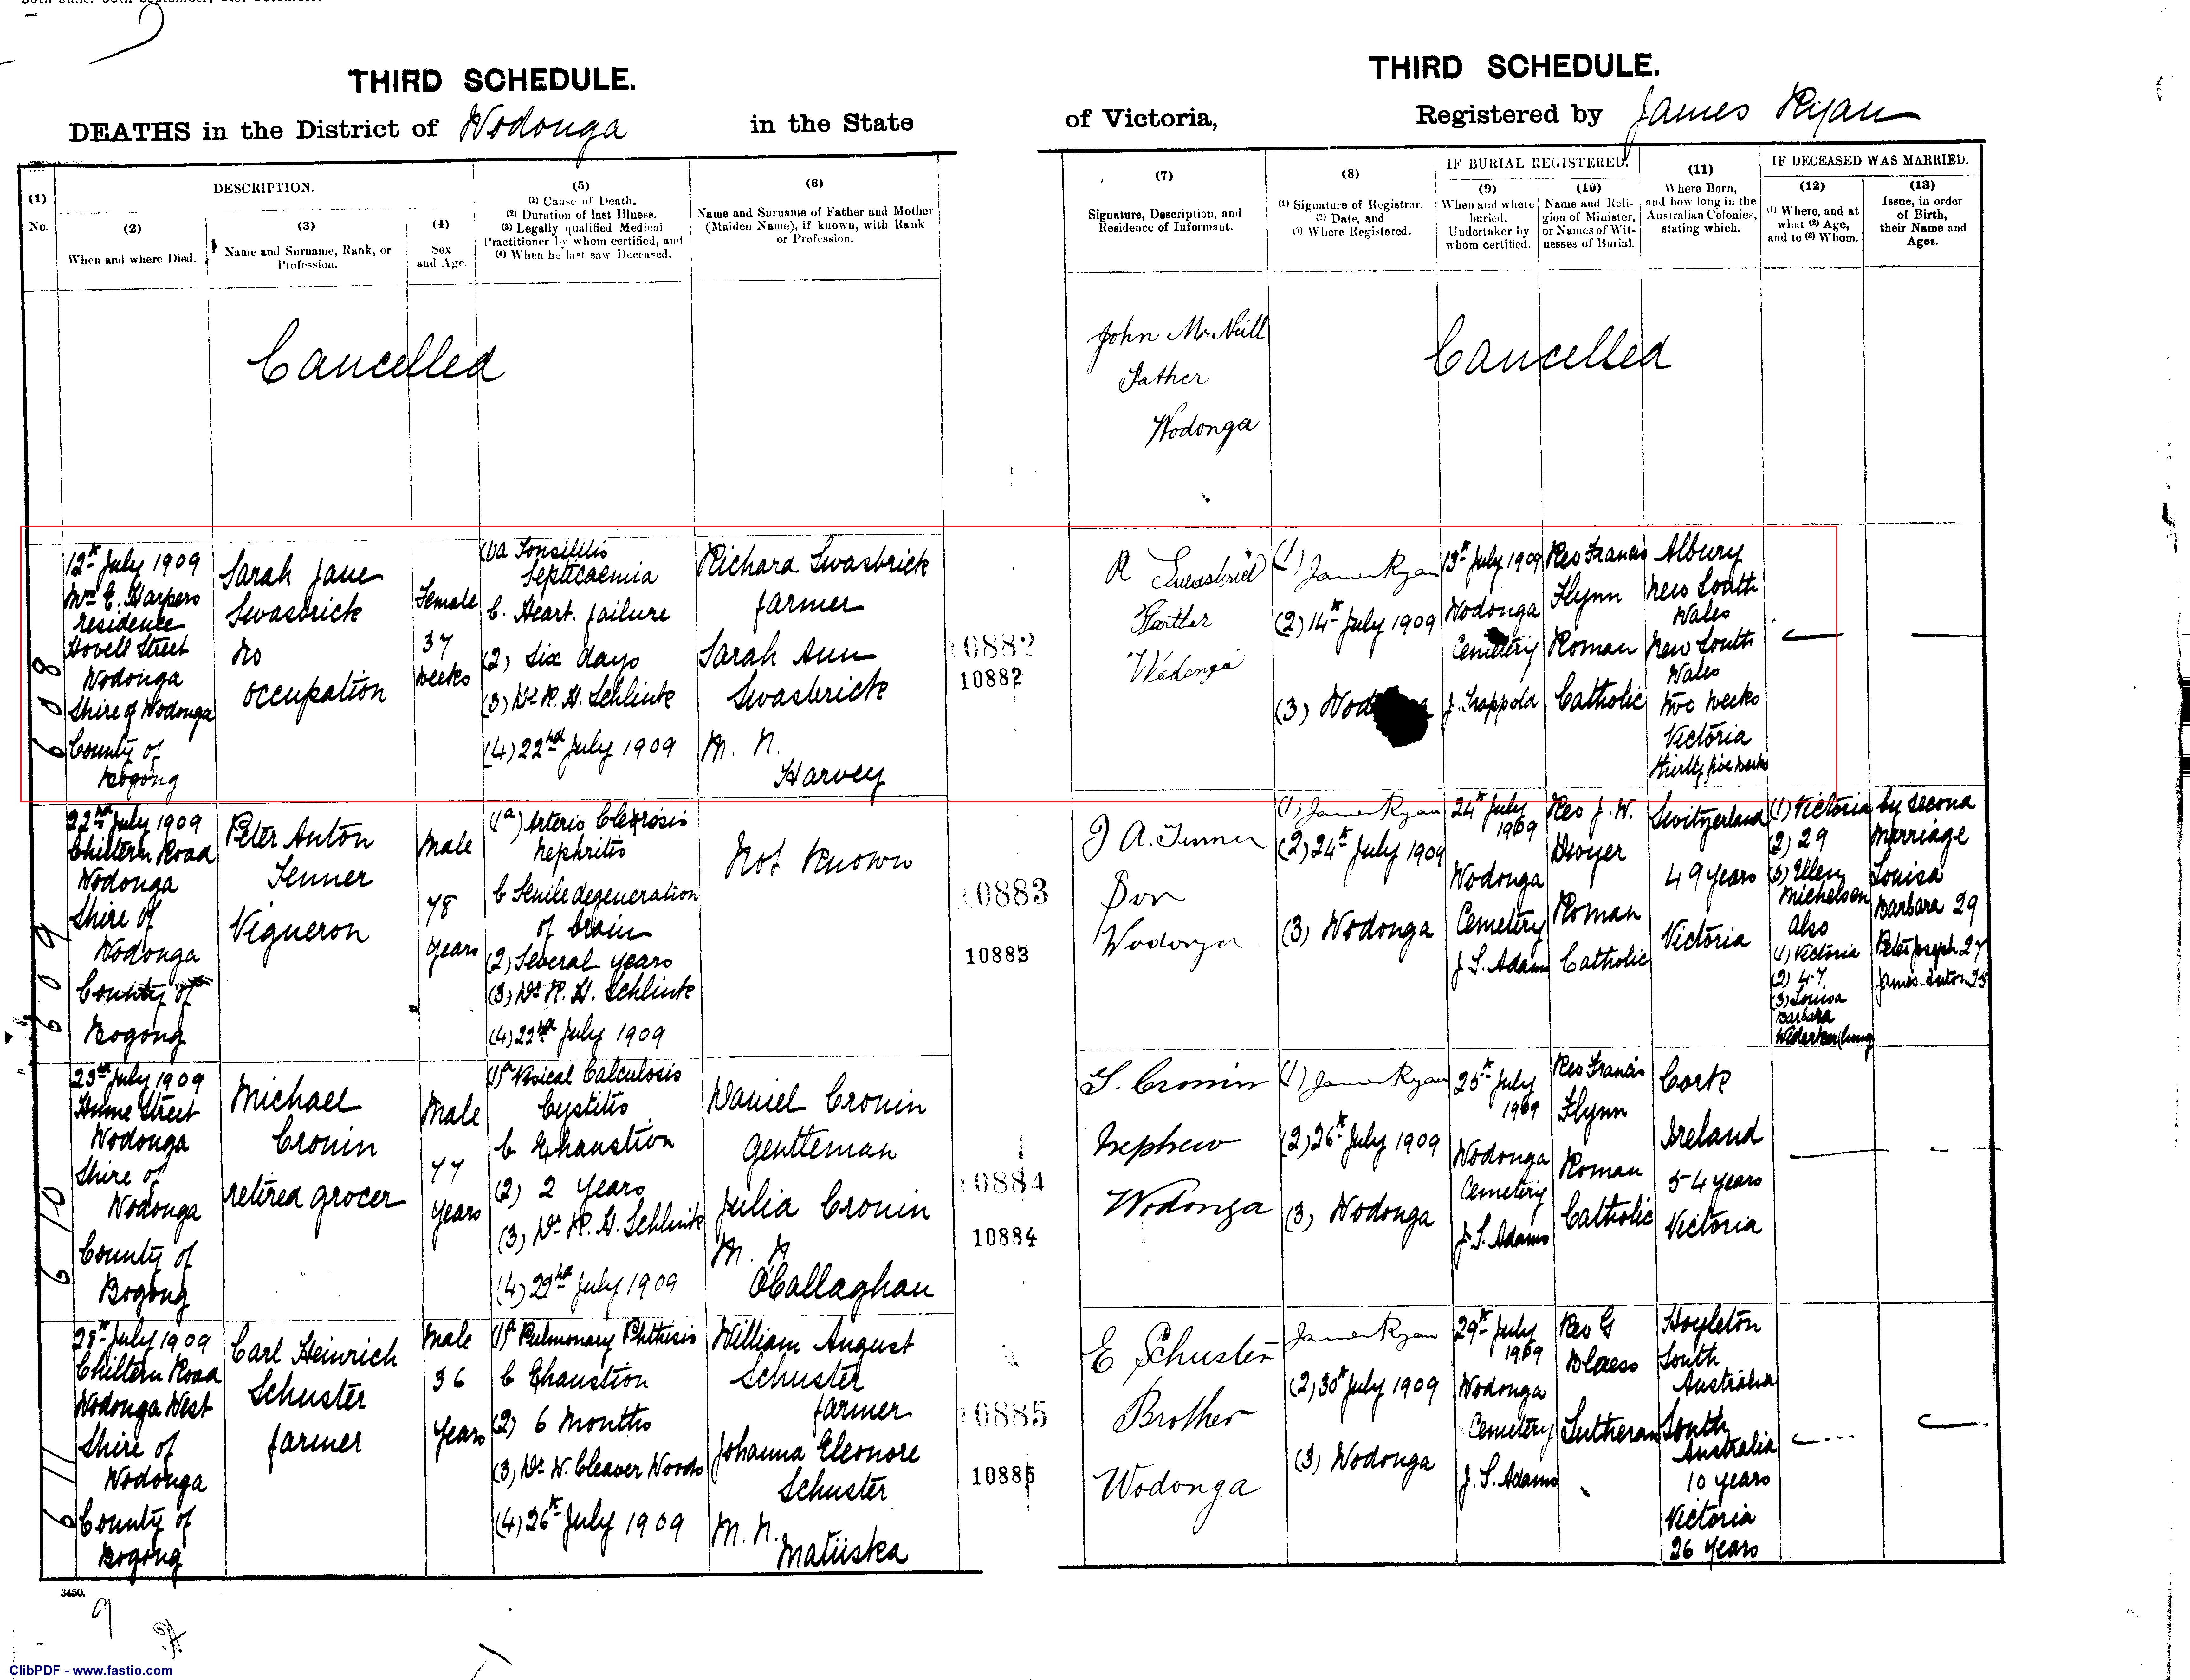 THIRD SCHEDULE.
DEATHS in the District of Wodonga in the State
(1)
No.
DESCRIPTION.
(2)
When and where Died.
(3)
Name and Surname, Rank, or
Profession.
(4)
Sex
and Age.
(5)
(1) Cause of Death.
(2) Duration of last Illness.
(3) Legally qualified Medical
Practitioner by whom certified, and
(4) When he last saw Deceased.
(6)
Name and Surname of Father and Mother
(Maiden Name), if known, with Rank
or Profession.
THIRD SCHEDULE.
of Victoria, Registered by James Ryan
(7)
Signature, Description, and
Residence of Informant.
(8)
(1) Signature of Registrar.
(2) Date, and
(3) Where Registered.
IF BURIAL REGISTERED.
(9)
When and where
buried.
Undertaker by
whom certified.
(10)
Name and Reli-
gion of Minister,
or Names of Wit-
nesses of Burial.
(11)
Where Born,
and how long in the
Australian Colonies,
stating which.
IF DECEASED WAS MARRIED.
(12)
(1) Where, and at
what (2) Age,
and to (3) Whom.
(13)
Issue, in order
of Birth,
their Name and
Ages.
Cancelled
John McNeill
Father
Wodonga
Cancelled
608
12th July 1909
Mrs E. Harpers
residence
Hovell Street
Wodonga
Shire of Wodonga
County of
Bogong
Sarah Jane
Swasbrick
no
occupation
Female
37
weeks
(1)a Tonsilitis
Septicaemia
b. Heart. failure
(2) Six days
(3) Dr R. H. Schlink
(4) 22nd July 1909
Richard Swasbrick
farmer
Sarah Ann
Swasbrick
M. N.
Harvey
10882
10882
R Swasbrick
Farther
Wodonga
(1) James Ryan
(2) 14th July 1909
(3)
13th July 1909
Wodonga
Cemetery
J. Trappold
Rev Francis
Flynn
Roman
Catholic
Albury
New South
Wales
New South
Wales
two weeks
Victoria
thirty five weeks
609
22nd July 1909
Chiltern Road
Wodonga
Shire of
Wodonga
County of
Bogong
Peter Anton
Tenner
Vigneron
Male
78
years
(1a) Arterio Clerosis
Nephritis
b Senile degeneration
of brain
(2) Several years
(3) Dr R. H. Schlink
(4) 22nd July 1909
Not Known
10883
10883
J A. Tenner
Son
Wodonga
(1) James Ryan
(2) 24th July 1909
(3) Wodonga
24th July
1909
Wodonga
Cemetery
J. S. Adams
Rev J. W.
Dwyer
Roman
Catholic
Switzerland
49 years
Victoria
(1) Victoria
(2) 29
(3) Ellen
Michelsen
also
(1) Victoria
(2) 47
(3) Louisa
Barbara
by second
Marriage
Louisa
Barbara 29
Peter Joseph 27
James Anton 25
610
23rd July 1909
Hume Street
Wodonga
Shire of
Wodonga
County of
Bogong
Michael
Cronin
retired grocer
Male
77
years
(1)a Vesical Calculosis
Cystitis
b Exhaustion
(2) 2 years
(3) Dr R. H. Schlink
(4) 22nd July 1909
Daniel Cronin
gentleman
Julia Cronin
M. N
O'Callaghan
10884
10884
T. Cronin
Nephew
Wodonga
(1) James Ryan
(2) 26th July 1909
(3) Wodonga
25th July
1909
Wodonga
Cemetery
J. S. Adams
Rev Francis
Flynn
Roman
Catholic
Cork
Ireland
54 years
Victoria
611
28th July 1909
Chiltern Road
Wodonga West
Shire of
Wodonga
County of
Bogong
Carl Heinrich
Schuster
farmer
Male
36
years
(1)a Pulmonary Phthisis
b Exhaustion
(2) 6 months
(3) Dr W. Cleaver Woods
(4) 26th July 1909
William August
Schuster
farmer
Johanna Eleonore
Schuster
M. N.
Matuska
10885
10885
E Schuster
Brother
Wodonga
James Ryan
(2) 30th July 1909
(3) Wodonga
29th July
1909
Wodonga
Cemetery
J. S. Adams
Rev G
Blaess
Lutheran
Hoyleton
South
Australia
South
Australia
10 years
Victoria
26 years
3450.
9
ClibPDF - www.fastio.com